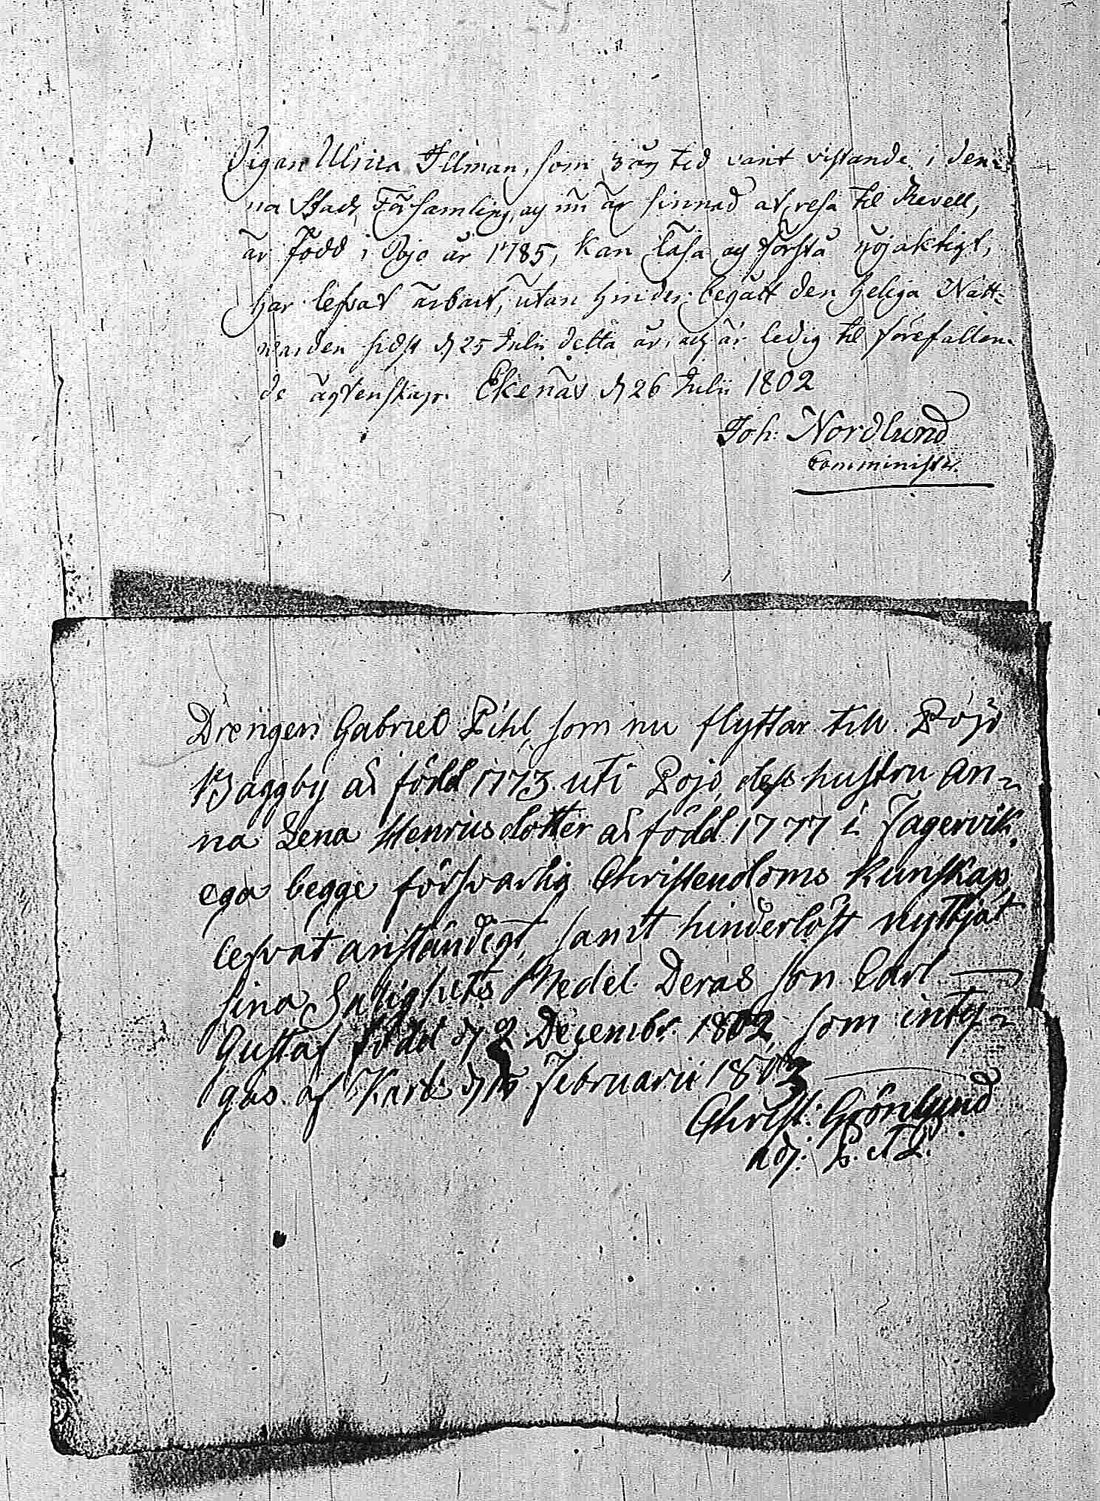 Pigan Ulrica Illman, som 3 års tid varit vistande i den-
na Stads Församling, och nu är sinnad at resa til Revell,
är född i Pojo år 1785, kan läsa och förstå nöjaktigt,
har lefvat ärbart, utan hinder begått den heliga Natt-
varden sidst d 25 Julii detta år, och är ledig til förefallan-
de ägtenskap. Ekenäs d 26 Julii 1802
Joh: Nordlund
Comminister.
Drengen Gabriel Pihl, som nu flyttar till Pojo
Baggby är född 1773 uti Pojo, dess hustru An-
na Lena Henricsdotter är född 1777 i Fagervik,
ega begge försvarlig Christendoms kunskap,
lefvat anständigt, samt hinderlöst nyttjat
sina Salighets Medel. Deras son Carl
Gustaf född d 2 Decembr. 1802, som inty-
gas af Karis d Februarii 1803
Christ: Grönlund
adj: